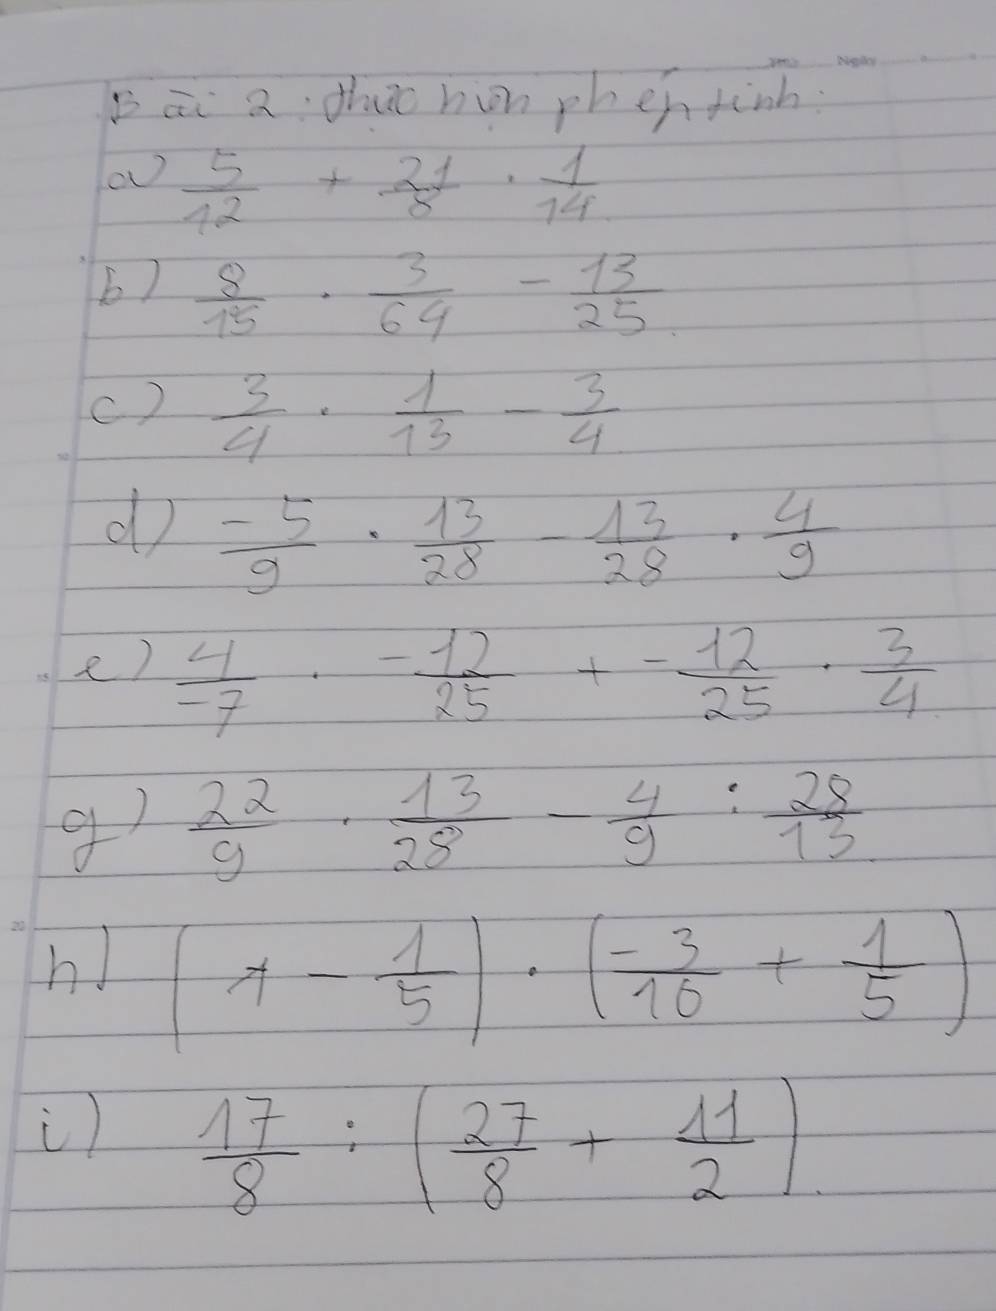 Bài 2: thực hiện phép tính:
a) 5/12 + 21/8 . 1/14
b) 8/15 . 3/64 - 13/25
c) 3/4 . 1/13 - 3/4
d) -5/9 . 13/28 - 13/28 . 4/9
e) 4/-7 . -12/25 + -12/25 . 3/4
g) 22/9 . 13/28 - 4/9 : 28/13
h) (1 - 1/5) . (-3/10 + 1/5)
i) 17/8 : (27/8 + 11/2)